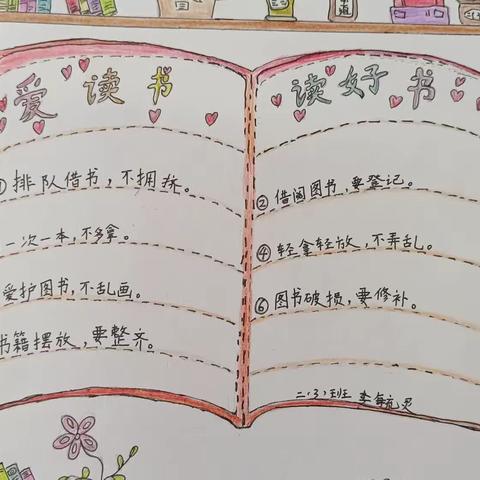 爱读书
①排队借书，不拥挤。
一次一本，不多拿。
爱护图书，不乱画。
书籍摆放，要整齐。
读好书
②借阅图书，要登记。
④轻拿轻放，不弄乱。
⑥图书破损，要修补。
二.(3)班